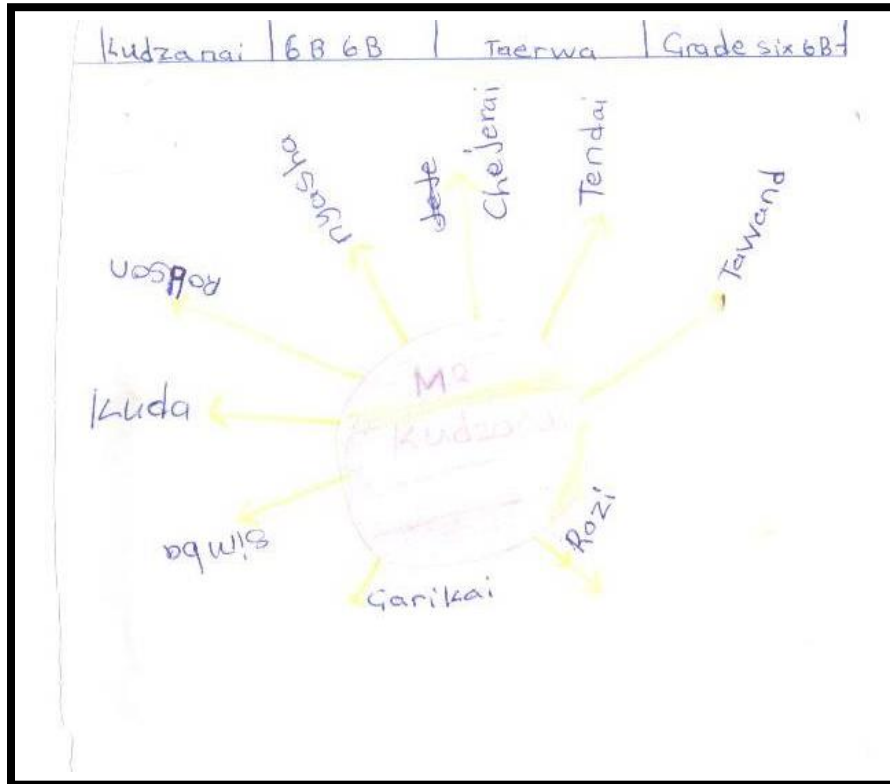 Kudzanai 6B 6B Taerwa Grade six 6B
nyasha
Chejerai
Tendai
Tawand
Kuda
Kudzanai
Simba
Garikai
Rozi